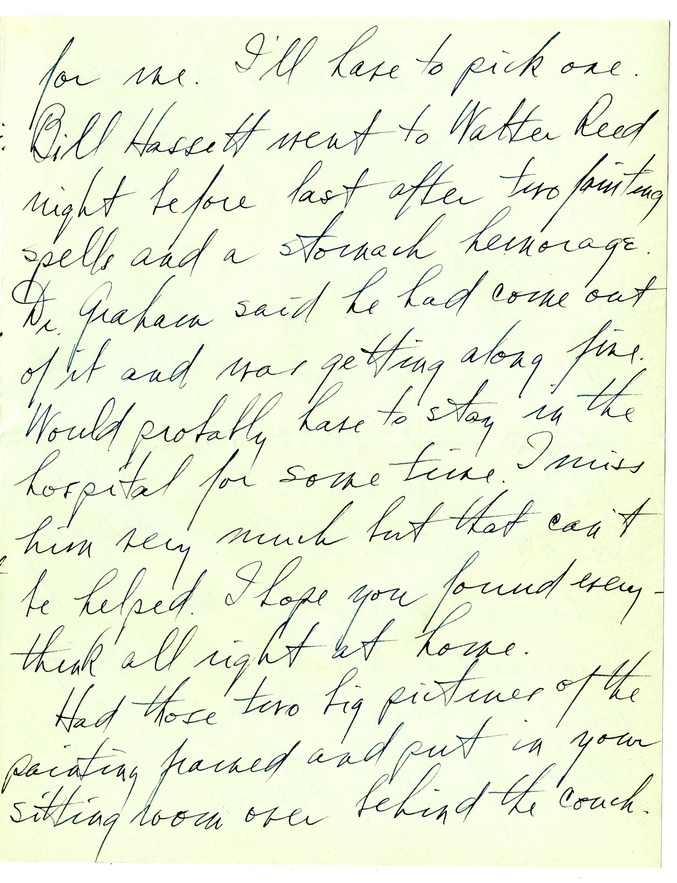 for me. I'll have to pick one.
Bill Hassett went to Walter Reed
night before last after two fainting
spells and a stomach hemorage.
Dr. Graham said he had come out
of it and was getting along fine.
Would probably have to stay in the
hospital for some time. I miss
him very much but that can't
be helped. I hope you found every-
think all right at home.
Had those two big pictures of the
painting framed and put in your
sitting room over behind the couch.